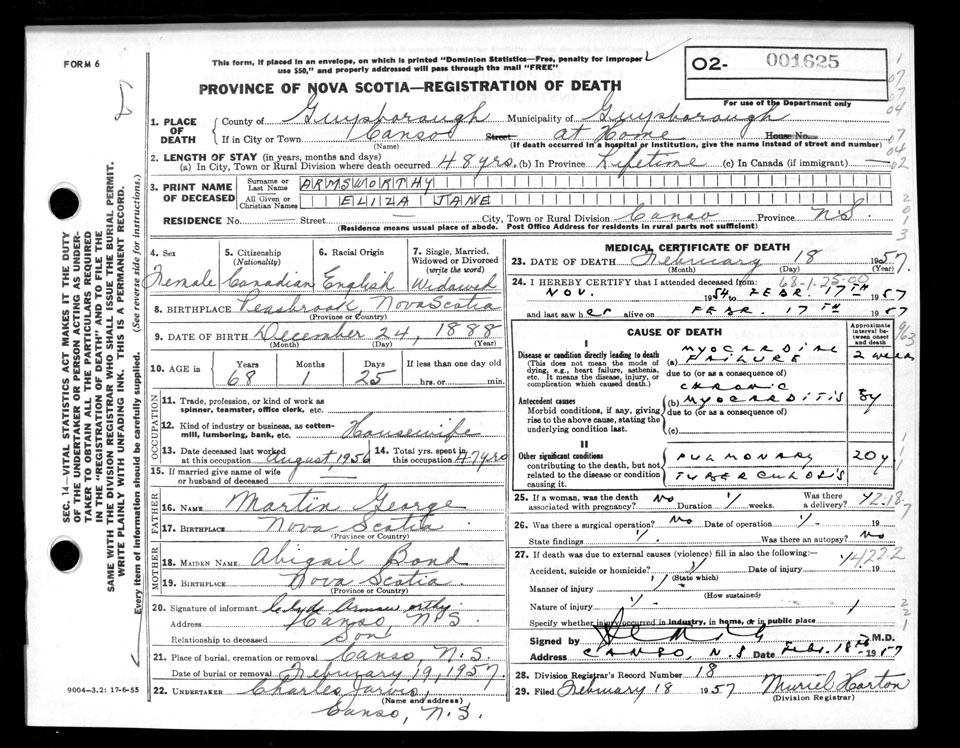 FORM 6
This form, if placed in an envelope, on which is printed "Dominion Statistics—Free, penalty for improper
use $50," and properly addressed will pass through the mail "FREE"
PROVINCE OF NOVA SCOTIA—REGISTRATION OF DEATH
02- 001625
For use of the Department only
1. PLACE OF DEATH County of Guysborough Municipality of Guysborough
If in City or Town Canso Street at Home House No.
(Name) (If death occurred in a hospital or institution, give the name instead of street and number)
2. LENGTH OF STAY (in years, months and days)
(a) In City, Town or Rural Division where death occurred 48 yrs. (b) In Province Lifetime (c) In Canada (if immigrant) —
3. PRINT NAME OF DECEASED Surname or Last Name ARMSWORTHY
All Given or Christian Names ELIZA JANE
RESIDENCE No. — Street — City, Town or Rural Division Canso Province N.S.
(Residence means usual place of abode. Post Office Address for residents in rural parts not sufficient)
4. Sex 5. Citizenship (Nationality) 6. Racial Origin 7. Single, Married, Widowed or Divorced (write the word)
Female Canadian English Widowed
8. BIRTHPLACE Nova Scotia
(Province or Country)
9. DATE OF BIRTH December 24, 1888
(Month) (Day) (Year)
10. AGE in Years Months Days If less than one day old
68 1 25 hrs. or min.
OCCUPATION
11. Trade, profession, or kind of work as spinner, teamster, office clerk, etc.
12. Kind of industry or business, as cotton-mill, lumbering, bank, etc. Housewife
13. Date deceased last worked at this occupation August, 1956 14. Total yrs. spent in this occupation 47 yrs
15. If married give name of wife or husband of deceased —
FATHER
16. NAME Martin George
17. BIRTHPLACE Nova Scotia
(Province or Country)
MOTHER
18. MAIDEN NAME Abigail Bond
19. BIRTHPLACE Nova Scotia
(Province or Country)
20. Signature of informant Clyde Armsworthy
Address Canso, N.S.
Relationship to deceased Son
21. Place of burial, cremation or removal Canso, N.S.
Date of burial or removal February 19, 1957.
22. UNDERTAKER Charles Jarvis,
(Name and address)
Canso, N.S.
MEDICAL CERTIFICATE OF DEATH
23. DATE OF DEATH February 18 1957.
(Month) (Day) (Year)
68-1-25-00
24. I HEREBY CERTIFY that I attended deceased from:
NOV. 1954 to FEBR. 17TH 1957
and last saw her alive on FEBR. 17TH 1957
CAUSE OF DEATH
Approximate interval between onset and death
I
Disease or condition directly leading to death (a) MYOCARDIAL FAILURE 2 weeks
(This does not mean the mode of dying, e.g., heart failure, asthenia, etc. It means the disease, injury, or complication which caused death.)
due to (or as a consequence of)
Antecedent causes (b) CHRONIC MYOCARDITIS 8y
Morbid conditions, if any, giving rise to the above cause, stating the underlying condition last.
due to (or as a consequence of)
(c)
II
Other significant conditions PULMONARY TUBERCULOSIS 20y
contributing to the death, but not related to the disease or condition causing it.
25. If a woman, was the death associated with pregnancy? No Duration weeks. Was there a delivery?
26. Was there a surgical operation? No Date of operation 19
State findings Was there an autopsy? No
27. If death was due to external causes (violence) fill in also the following:
Accident, suicide or homicide? Date of injury 19
(State which)
Manner of injury
(How sustained)
Nature of injury
Specify whether injury occurred in industry, in home, or in public place
Signed by M.D.
Address CANSO, N.S Date Feb. 18th 1957
28. Division Registrar's Record Number 18
29. Filed February 18 1957 Muriel Horton
(Division Registrar)
SEC. 14—VITAL STATISTICS ACT MAKES IT THE DUTY
OF THE UNDERTAKER OR PERSON ACTING AS UNDER-
TAKER TO OBTAIN ALL THE PARTICULARS REQUIRED
IN THE "REGISTRATION OF DEATH" AND TO FILE THE
SAME WITH THE DIVISION REGISTRAR WHO SHALL ISSUE THE BURIAL PERMIT.
WRITE PLAINLY WITH UNFADING INK. THIS IS A PERMANENT RECORD.
Every item of information should be carefully supplied. (See reverse side for instructions.)
9004-3.2: 17-6-55